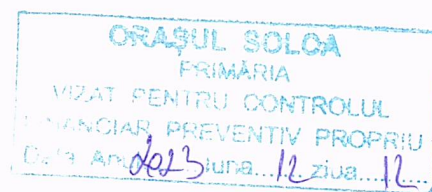 ORAȘUL SOLCA
PRIMĂRIA
VIZAT PENTRU CONTROLUL
FINANCIAR PREVENTIV PROPRIU
Data Anul 2023 luna....12..ziua....12....